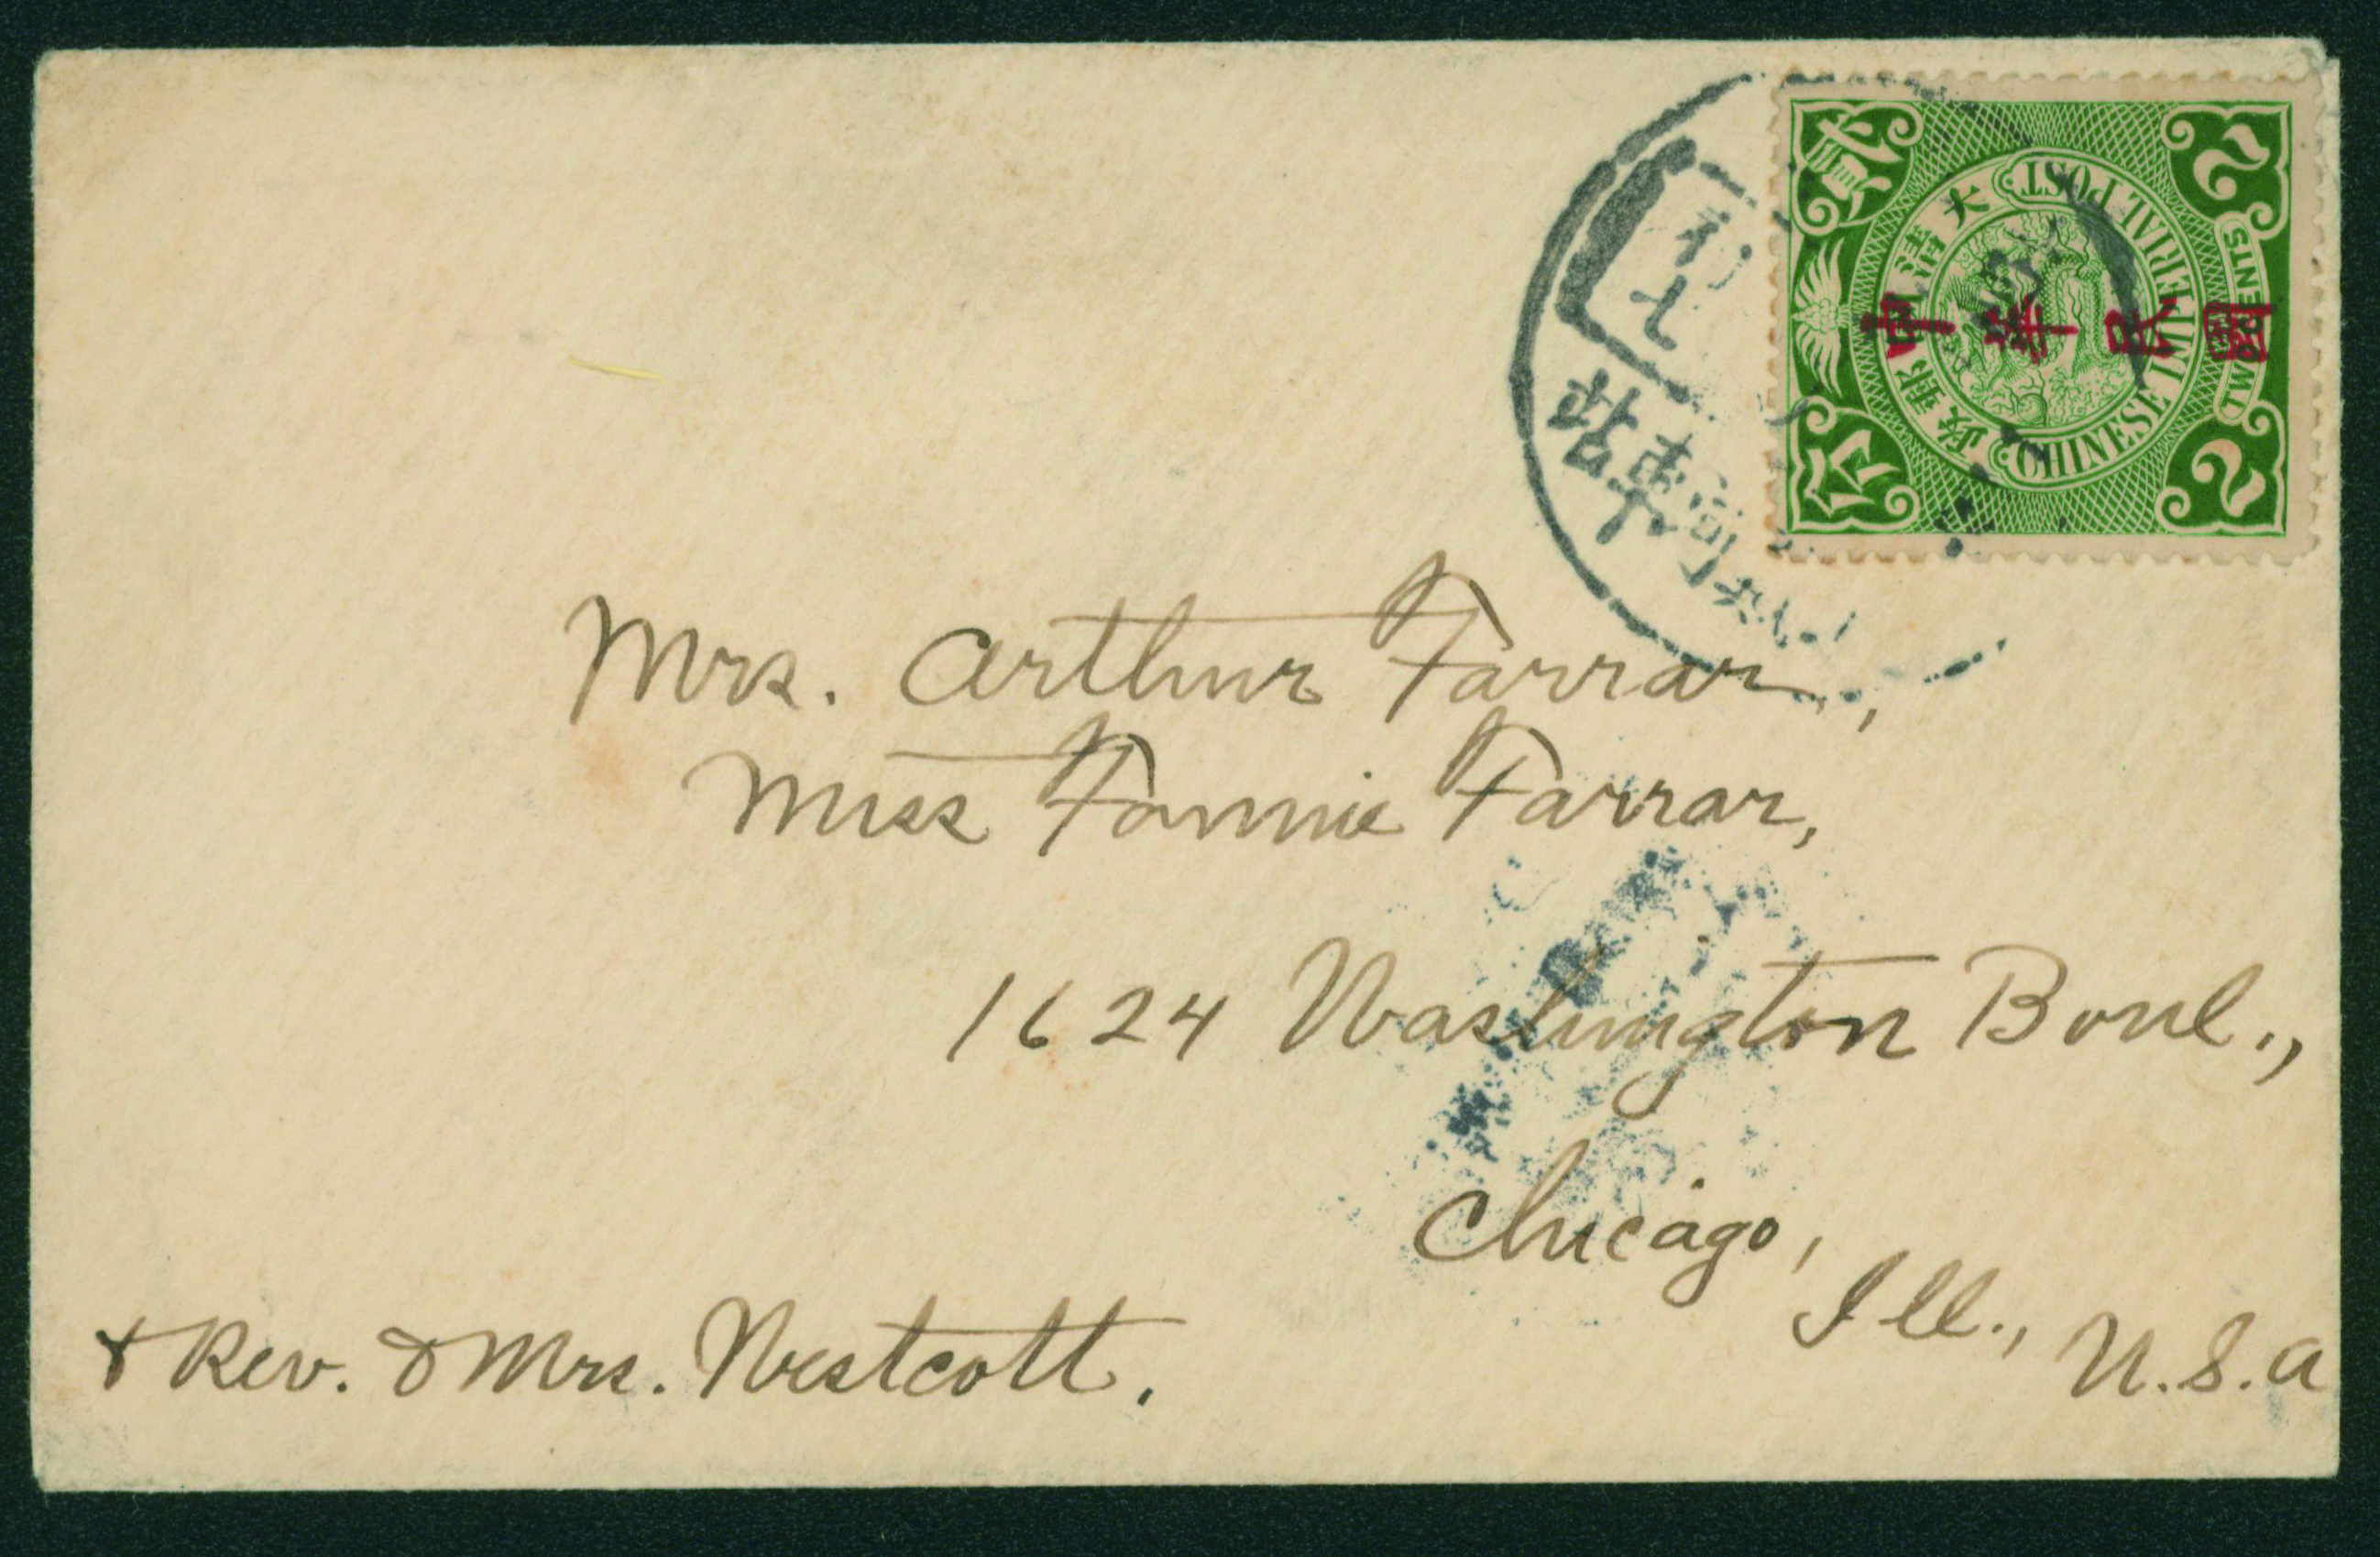 大清郵政
CHINESE IMPERIAL POST
貳分
2 2
TWO CENTS
中華民國
初七
Mrs. Arthur Farrar,
Miss Fannie Farrar,
1624 Washington Boul.,
Chicago,
Ill., U.S.A
& Rev. & Mrs. Westcott.